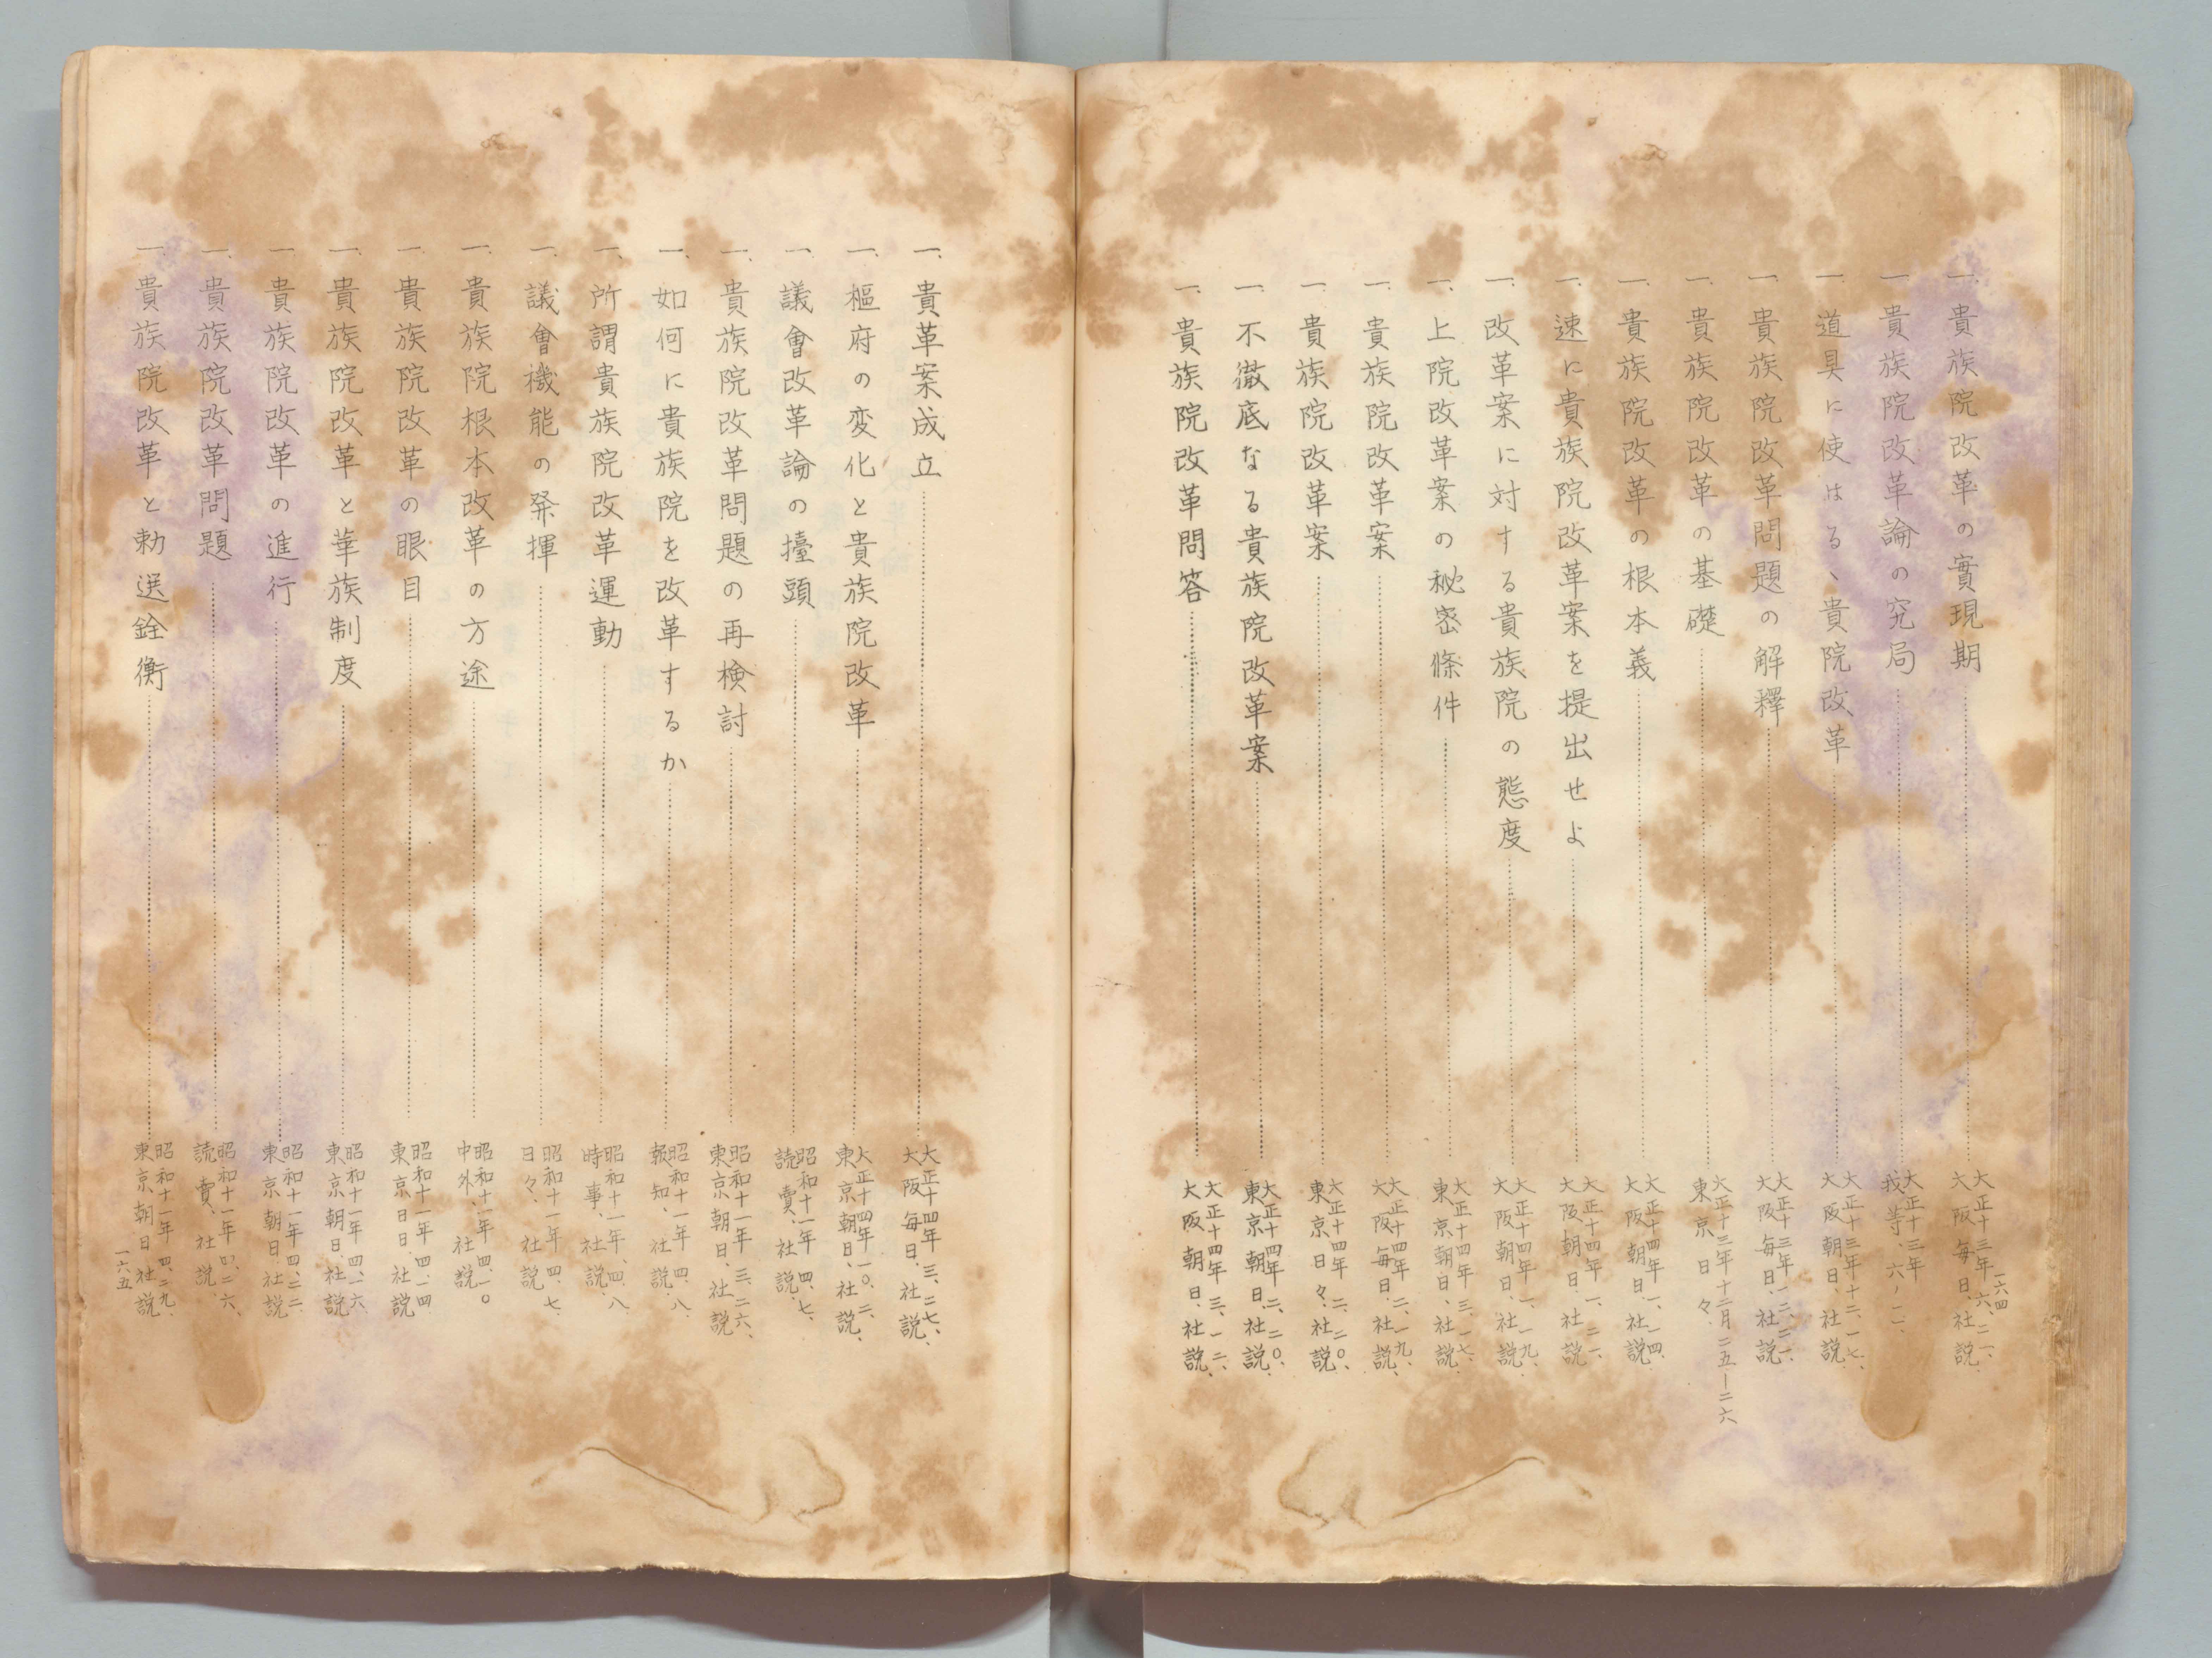 一、貴族院改革の實現期……大正十三年六、二一、大阪毎日、社説、
一六四
一、貴族院改革論の究局……大正十三年我等六ノ二、
一、道具に使はるゝ貴院改革……大正十三年十二、一七、大阪朝日、社説、
一、貴族院改革問題の解釋……大正十三年一二、二一、大阪毎日、社説
一、貴族院改革の基礎……大正十三年十二月二五―二六東京日々
一、貴族院改革の根本義……大正十四年一、一四、大阪朝日、社説
一、速に貴族院改革案を提出せよ……大正十四年一、二一、大阪朝日、社説
一、改革案に対する貴族院の態度……大正十四年一、一九、大阪朝日、社説
一、上院改革案の秘密條件……大正十四年三、一七、東京朝日、社説
一、貴族院改革案……大正十四年二、一九、大阪毎日、社説、
一、貴族院改革案……大正十四年二、二〇、東京日々、社説、
一、不徹底なる貴族院改革案……大正十四年二、二〇、東京朝日、社説、
一、貴族院改革問答……大正十四年三、一二、大阪朝日、社説、
一、貴革案成立……大正十四年三、二七、大阪毎日、社説、
一、樞府の変化と貴族院改革……大正十四年一〇、二、東京朝日、社説、
一、議會改革論の擡頭……昭和十一年四、七、読賣、社説、
一、貴族院改革問題の再検討……昭和十一年三、二六、東京朝日、社説
一、如何に貴族院を改革するか……昭和十一年四、八、報知、社説、
一、所謂貴族院改革運動……昭和十一年、四、八時事、社説、
一、議會機能の発揮……昭和十一年四、七、日々、社説
一、貴族院根本改革の方途……昭和十一年四、一〇中外、社説、
一、貴族院改革の眼目……昭和十一年四、一四、東京日日、社説
一、貴族院改革と華族制度……昭和十一年四、一六、東京朝日、社説
一、貴族院改革の進行……昭和十一年四、二二、東京朝日、社説
一、貴族院改革問題……昭和十一年四、二六、読賣、社説、
一、貴族院改革と勅選銓衡……昭和十一年四、二九、東京朝日、社説、
一六五